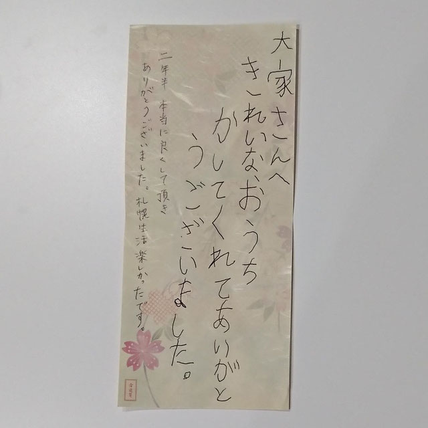 大家さんへ
きれいな、おうち
かしてくれてあいがと
うございました。
二年半 本当に良くして頂き
ありがとうございました。札幌生活楽しかったです。